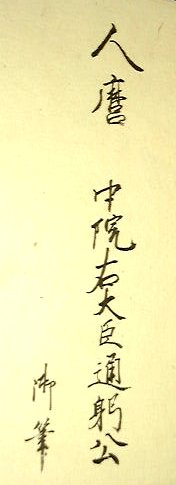 人麿 中院右大臣通躬公
御筆